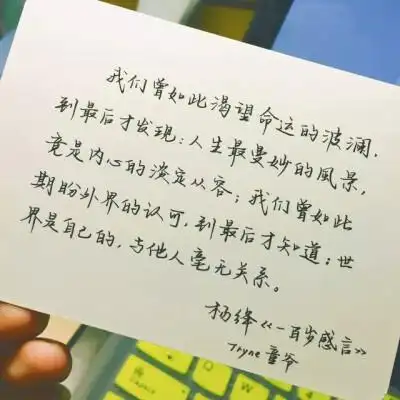 我们曾如此渴望命运的波澜,
到最后才发现:人生最曼妙的風景,
竟是内心的淡定从容;我们曾如此
期盼外界的认可,到最后才知道:世
界是自己的,与他人毫无关系。
杨绛《一百岁感言》
Tryne 童爷